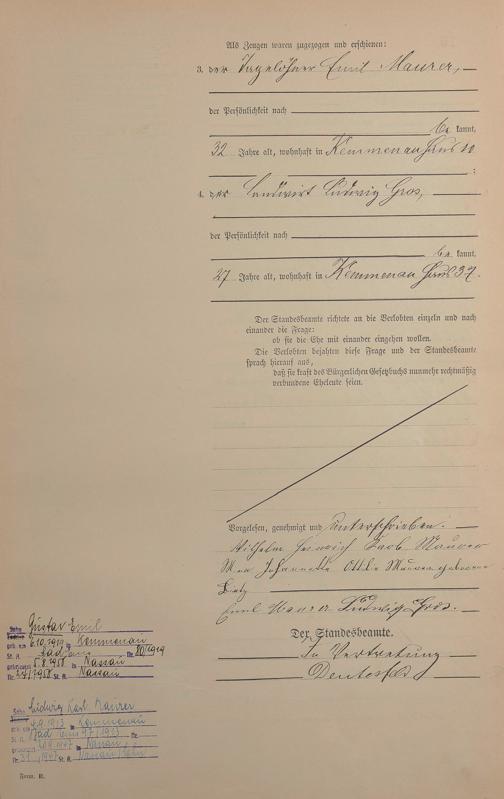 Als Zeugen waren zugezogen und erschienen:
3. der Tagelöhner Emil Maurer,
der Persönlichkeit nach
be kannt,
32 Jahre alt, wohnhaft in Kemmenau Haus
;
4. der Landwirt Ludwig Gros,
der Persönlichkeit nach
be kannt,
27 Jahre alt, wohnhaft in Kemmenau Haus 37.
Der Standesbeamte richtete an die Verlobten einzeln und nach
einander die Frage:
ob sie die Ehe mit einander eingehen wollen.
Die Verlobten bejahten diese Frage und der Standesbeamte
sprach hierauf aus,
daß sie kraft des Bürgerlichen Gesetzbuchs nunmehr rechtmäßig
verbundene Eheleute seien.
Vorgelesen, genehmigt und unterschrieben.
Wilhelm Heinrich Maurer
Johannette Maurer geborene
Emil Maurer Ludwig Gros.
Der Standesbeamte.
In Vertretung
Gustav Emil
in Kemmenau
St. A. Bad Ems Nr.
5.8.1958 in Nassau
Nr. St. A. Nassau
Ludwig Karl Maurer
4.9.1913 in Kemmenau
St. A. Bad Ems 97/1913
in Nassau
Nr. St. A. Nassau/Lahn
Form. B.